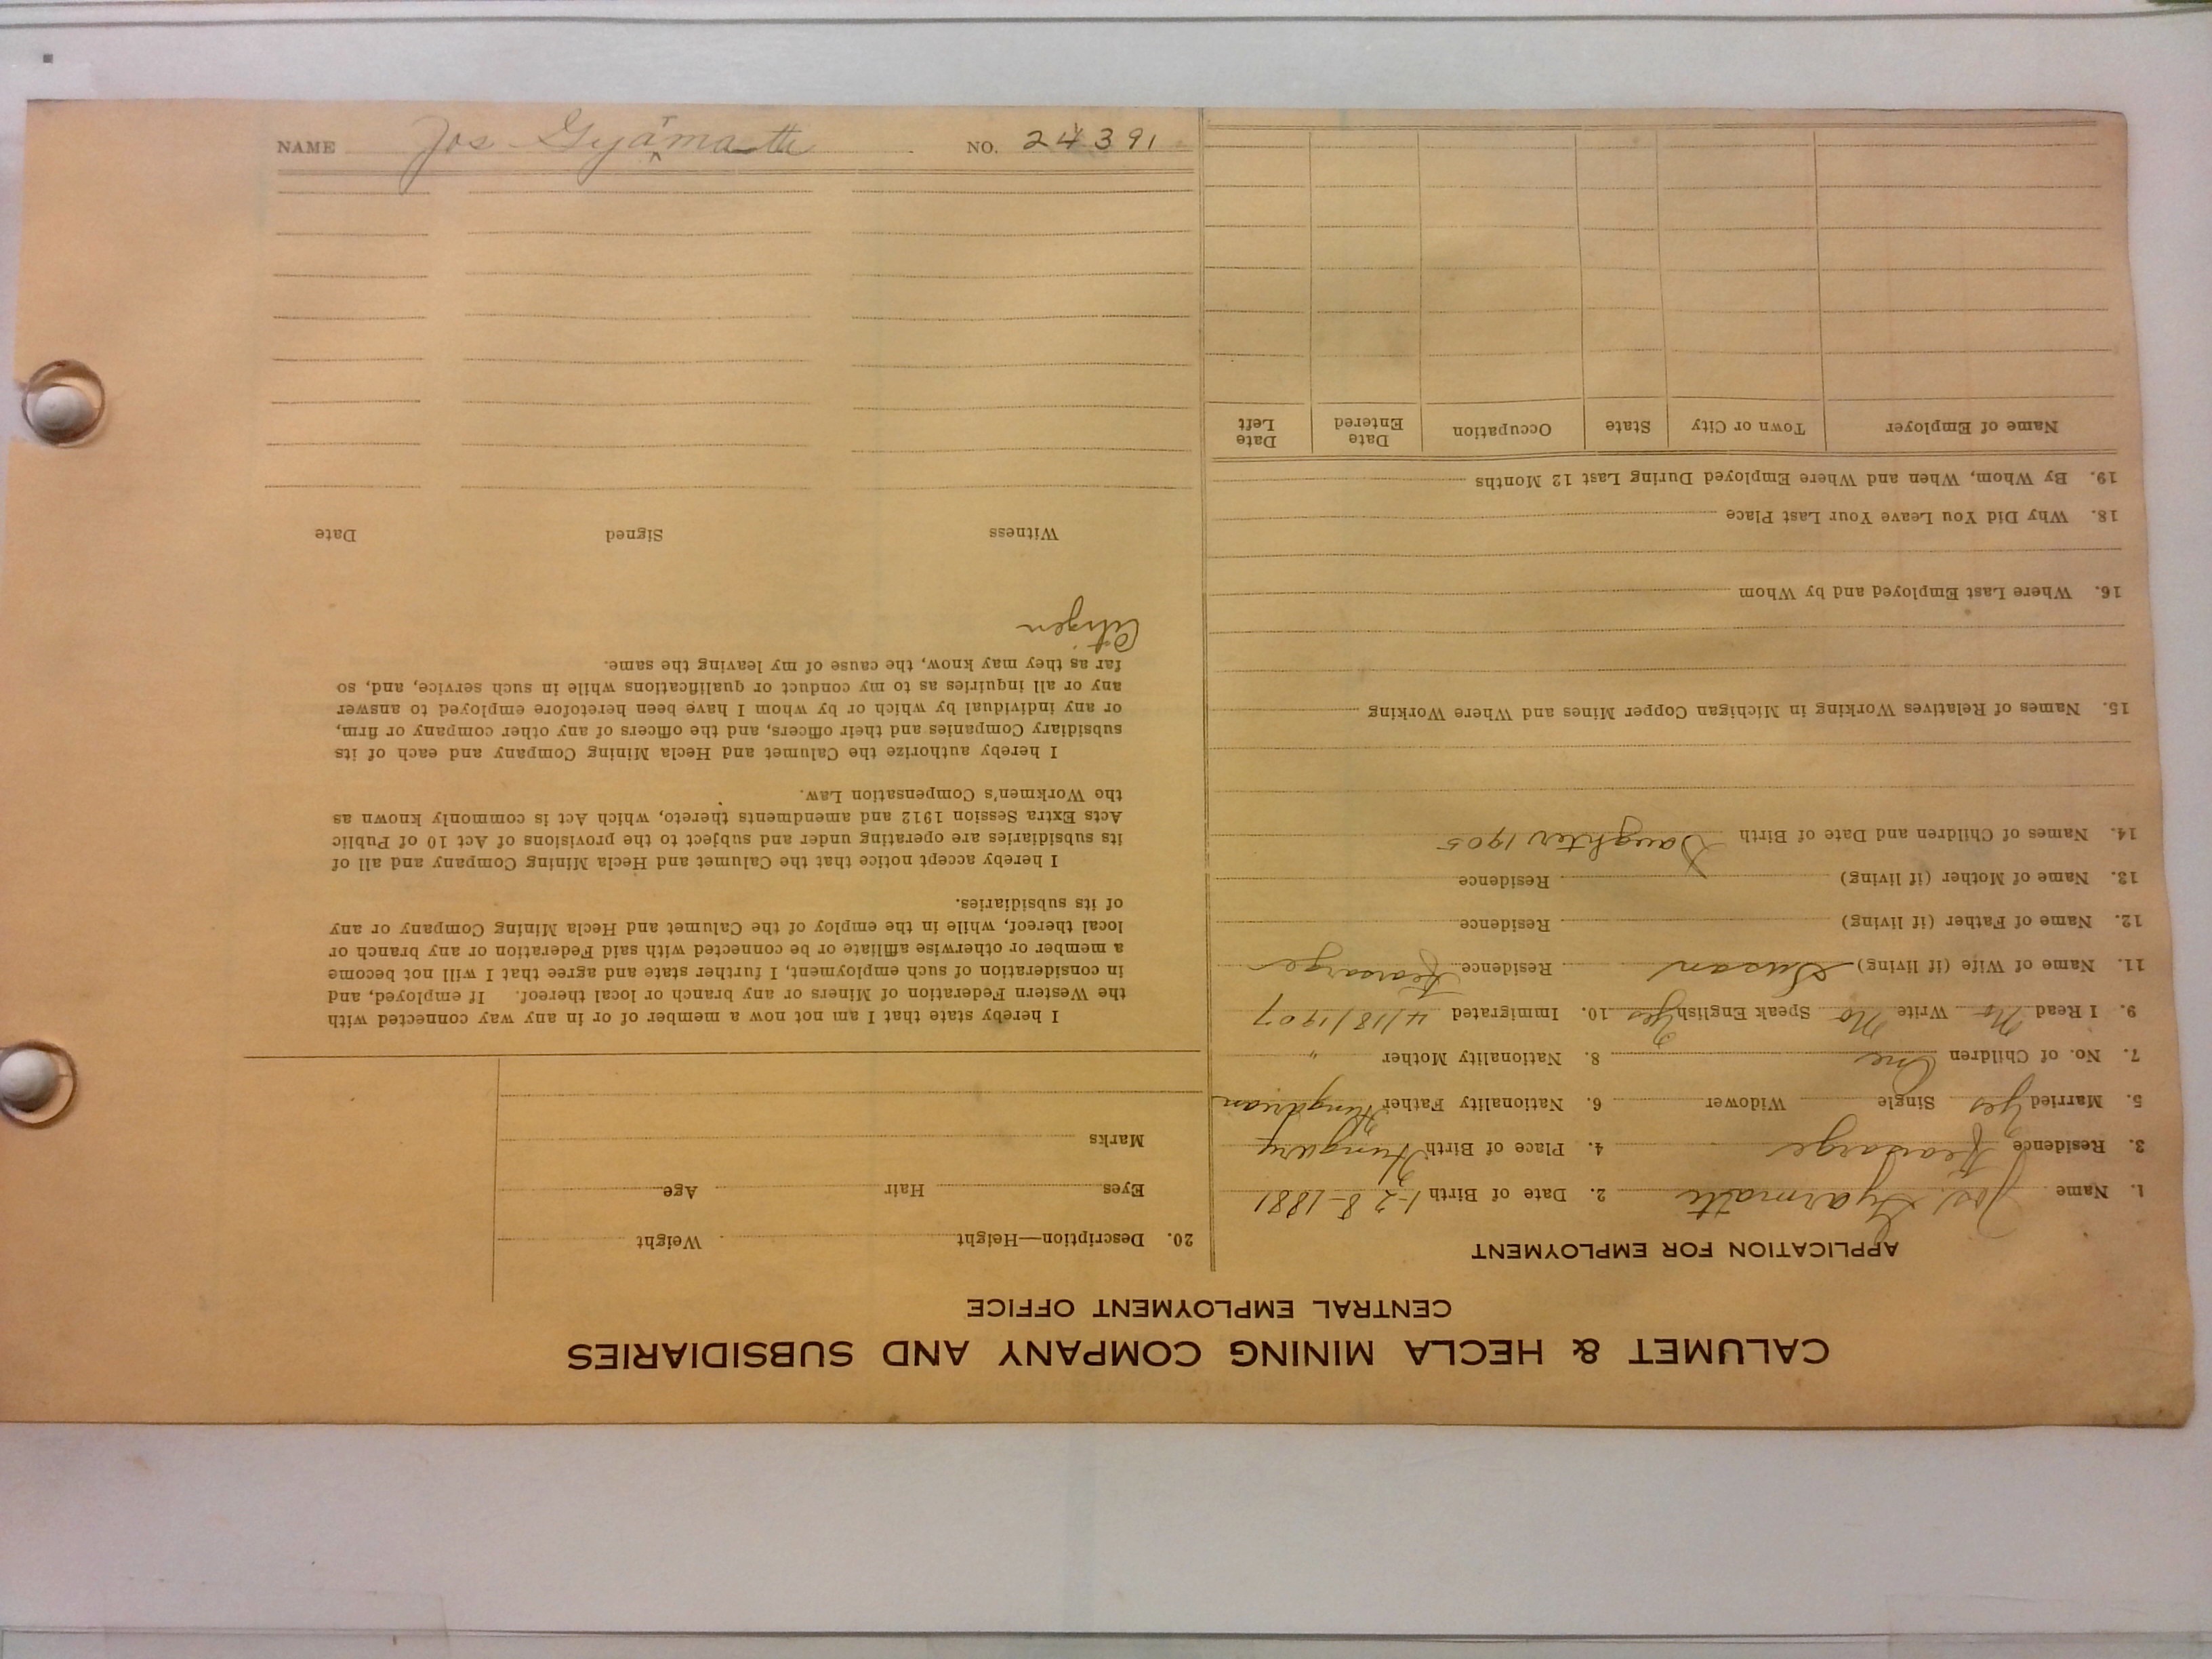 CALUMET & HECLA MINING COMPANY AND SUBSIDIARIES
CENTRAL EMPLOYMENT OFFICE
APPLICATION FOR EMPLOYMENT
1. Name Jos. Gyarmati 2. Date of Birth 1-28-1881
3. Residence Kearsarge 4. Place of Birth Hungary
5. Married Yes Single Widower 6. Nationality Father Hungarian
7. No. of Children One 8. Nationality Mother "
9. I Read No Write No Speak English Yes 10. Immigrated 4/18/1907
11. Name of Wife (if living) Susan Residence Kearsarge
12. Name of Father (if living) Residence
13. Name of Mother (if living) Residence
14. Names of Children and Date of Birth Daughter 1905
15. Names of Relatives Working in Michigan Copper Mines and Where Working
16. Where Last Employed and by Whom
18. Why Did You Leave Your Last Place
19. By Whom, When and Where Employed During Last 12 Months
Name of Employer Town or City State Occupation Date Entered Date Left
20. Description—Height Weight
Eyes Hair Age
Marks
I hereby state that I am not now a member of or in any way connected with
the Western Federation of Miners or any branch or local thereof. If employed, and
in consideration of such employment, I further state and agree that I will not become
a member or otherwise affiliate or be connected with said Federation or any branch or
local thereof, while in the employ of the Calumet and Hecla Mining Company or any
of its subsidiaries.
I hereby accept notice that the Calumet and Hecla Mining Company and all of
its subsidiaries are operating under and subject to the provisions of Act 10 of Public
Acts Extra Session 1912 and amendments thereto, which Act is commonly known as
the Workmen's Compensation Law.
I hereby authorize the Calumet and Hecla Mining Company and each of its
subsidiary Companies and their officers, and the officers of any other company or firm,
or any individual by which or by whom I have been heretofore employed to answer
any or all inquiries as to my conduct or qualifications while in such service, and, so
far as they may know, the cause of my leaving the same.
Citizen
Witness Signed Date
NAME Jos Gyarmati NO. 24391